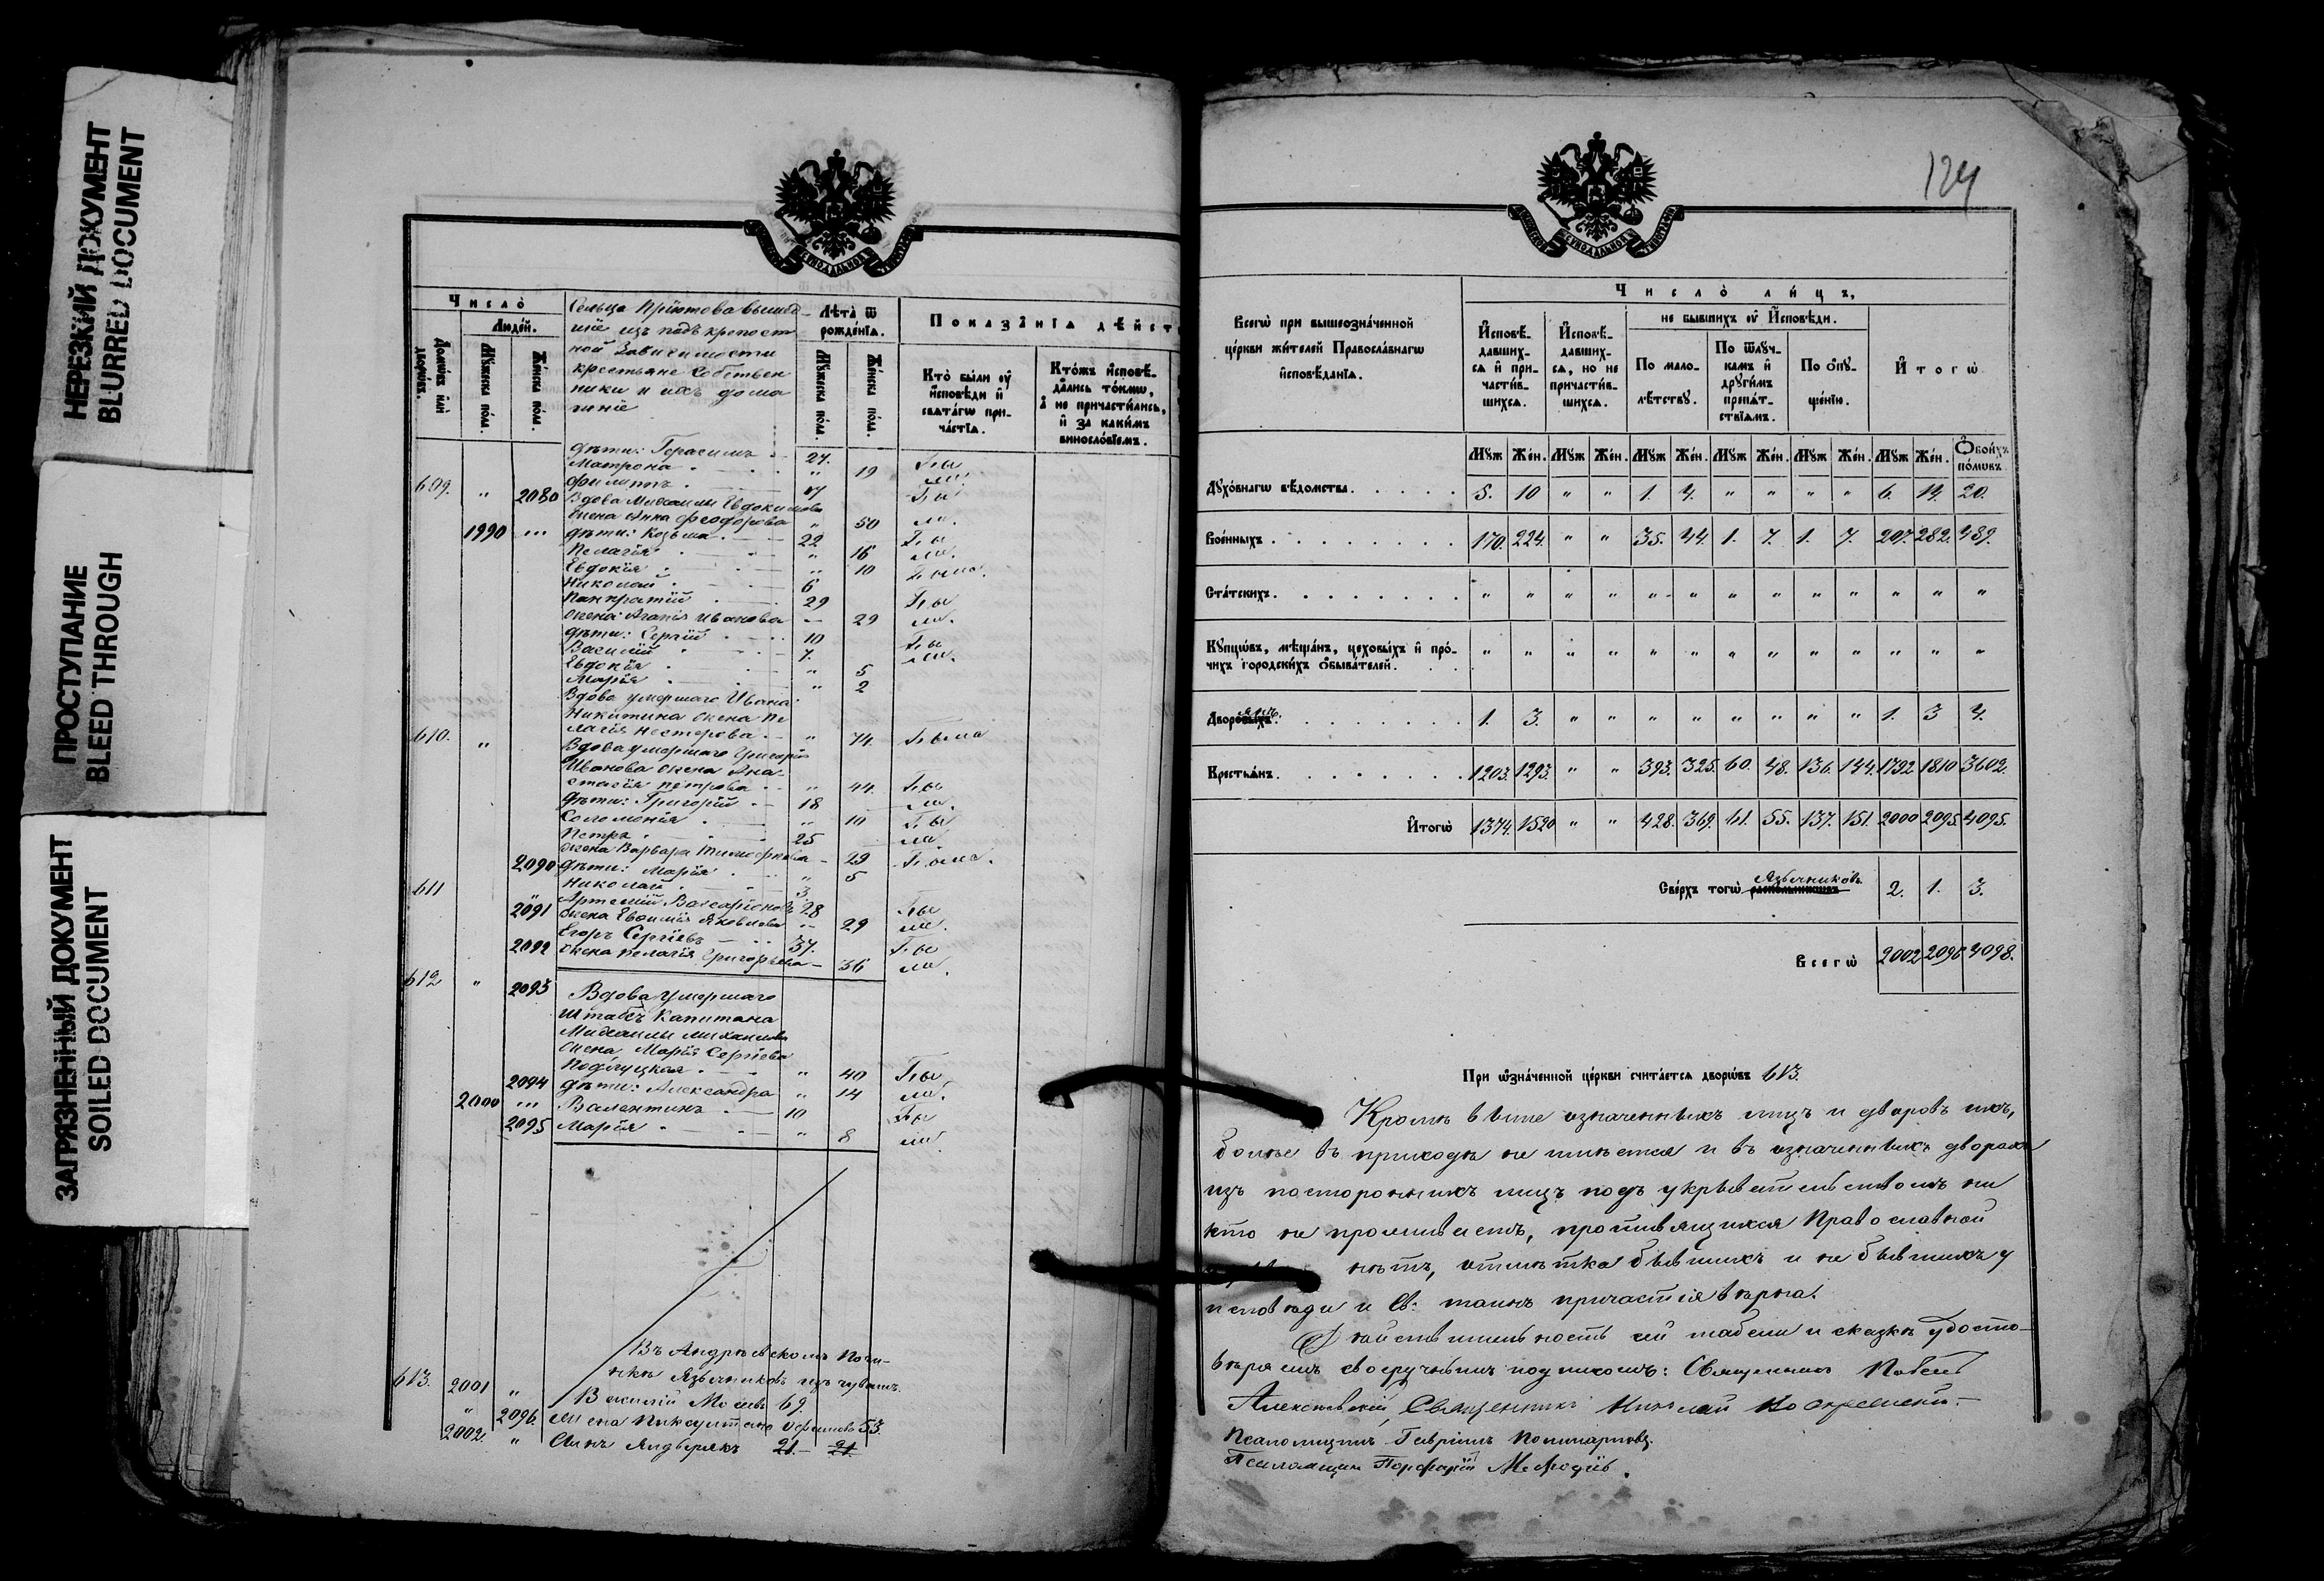 НЕРЕЗКИЙ ДОКУМЕНТ
BLURRED DOCUMENT
ПРОСТУПАНИЕ
BLEED THROUGH
ЗАГРЯЗНЕННЫЙ ДОКУМЕНТ
SOILED DOCUMENT
Число̀
Людей.
Домѡвъ или дворѡвъ.
Мꙋжеска пола.
Женска пола.
Сельца Прїютова вышед
шіе изъ подъ крепост
ной Зависимости
крестьяне Собствен
ники и ихъ дома
шніе
Лѣта ѿ рожденїѧ.
Мꙋжеска пола.
Женска пола.
Показанїѧ дѣйст
Кто были ꙋ исповѣди и свѧтагѡ причастїѧ.
Ктожъ исповѣдались токмѡ, а не причастились, и за какимъ винословїемъ.
дѣти: Герасимъ 27. Бы
Матрона " 19 ли.
Филиппъ Бы
609. " 2080 Вдова Михаилы Евдокимова
жена Анна Феодорова " 50 ли.
1990 дѣти: Козьма 22 Бы
Пелагія " 16 ли.
Евдокія " 10 Была.
Николай 6
Панкратій 29 Бы
жена Агапія Иванова 29 ли.
дѣти: Сергій 10 Бы
Василій 7. ли.
Евдокія " 5
Марія " 2
Вдова умершаго Ивана
Никитина жена Пе
лагія Нестерова " 74. Была
610. " Вдова умершаго Григорія
Иванова жена Ана-
стасія Петрова " 44. Бы
дѣти: Григорій 18 ли.
Соломонія " 10 Бы
Петръ 25 ли
жена Варвара Тимофеева 29 Была.
2090 дѣти: Марія " 5
Николай 3
611 " Артемій Вассаріоновъ 28 Бы
2091 жена Евѳимія Яковлева 29 ли.
Егоръ Сергіевъ 37. Бы
2092 жена Пелагія Григорьева 36 ли.
612 " 2093 Вдова умершаго
Штабсъ Капитана
Михаилы Михаилова
жена Марія Сергіева
" 40 Бы
2094 дѣти: Александра " 14 ли.
2000 Валентинъ 10 Бы
2095 Марія " 8 ли.
Въ Андреевскомъ Почи-
нкѣ Язычниковъ изъ чувашъ.
613. 2001 " 69.
" 2096. 53.
2002. " Сынъ 21. 21
124
Всегѡ при вышеозначенной церкви жителей Православнагѡ исповѣданїѧ.
Число̀ лицъ,
Исповѣдавшихсѧ и причастившихсѧ.
Исповѣдавшихсѧ, но не причастившихсѧ.
не бывшихъ ꙋ Исповѣди.
По малолѣтствꙋ.
По ѿлꙋчкамъ и дрꙋгимъ препѧтствїѧмъ.
По опꙋщенїю.
Итогѡ
Мꙋж Жен. Мꙋж Жен. Мꙋж Жен. Мꙋж Жен. Мꙋж Жен. Мꙋж Жен. Обоихъ половъ
Дꙋховнагѡ вѣдомства. 5. 10 " " 1. 4. " " " " 6. 14. 20.
Военныхъ 170. 224. " " 35. 44. 1. 7. 1. 7. 207. 282. 489.
Статскихъ. " " " " " " " " " " " " "
Кꙋпцѡвъ, мѣщанъ, цеховыхъ и прочихъ городскихъ обывателей. " " " " " " " " " " " " "
Дворянъ. 1. 3. " " " " " " " " 1. 3 4.
Крестьѧнъ. 1203. 1293. " " 393. 325. 60. 48. 136. 144. 1792. 1810 3602.
Итогѡ 1374. 1520 " " 428. 369. 61. 55. 137. 151. 2000 2095. 4095.
Сверхъ тогѡ Язычниковъ 2. 1. 3.
Всегѡ 2002 2096 4098.
При ѡзначенной церкви считаетсѧ дворѡвъ 613.
Кромѣ выше означенныхъ лицъ и дворовъ ихъ,
болѣе въ приходѣ не имѣется и въ означенныхъ дворахъ
изъ постороннихъ лицъ подъ укрывательствомъ ни
кто не проживаетъ, противящихся Православной
нѣтъ, отмѣтка бывшихъ и не бывшихъ у
исповѣди и Св: таинъ причастія вѣрна.
Дѣйствительность сей табели и сказки удосто-
вѣряемъ своеручнымъ подписомъ: Священникъ Павелъ
Алексѣевскій, Священникъ Николай Воскресенскій.
Псаломщикъ Гавріилъ
Псаломщикъ Порфирій Меѳодіевъ.